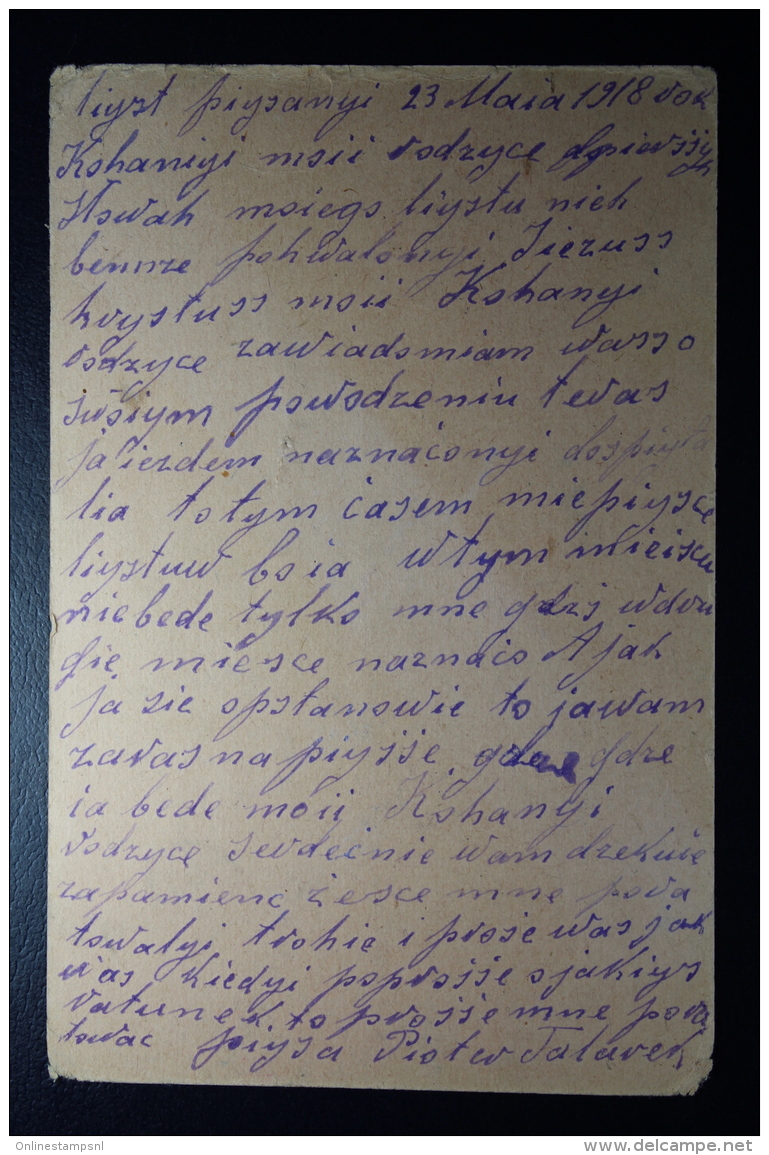 liyst piysanyi 23 Maia 1918 rok
Kohaniyi moii rodzyce
słowah moiego liystu nieh
benńze pohwalonyi Jiezuss
krystuss moii Kohanyi
rodzyce zawiadomiam wass o
swoiym powodzeniu teras
ja iezdem naznaćonyi dospiyta
lia to tym ćasem niepiysće
liystuw bo ia wtym mieiscu
niebede tylko mne gdzi wdru
gie miesce naznaćo A jak
ja sie opstanowie to jawam
zaras na piysse gdze
ia bede moii Kohanyi
rodzyce serdećnie wam dzekuie
zapamienc żesće mne pora
towalyi trohie i prose was jak
was kiedyi poprosse o jakiys
ratunek to prosse mne pora
towac piysa Piotr Talarek
Onlinestampsnl
www.delcampe.net